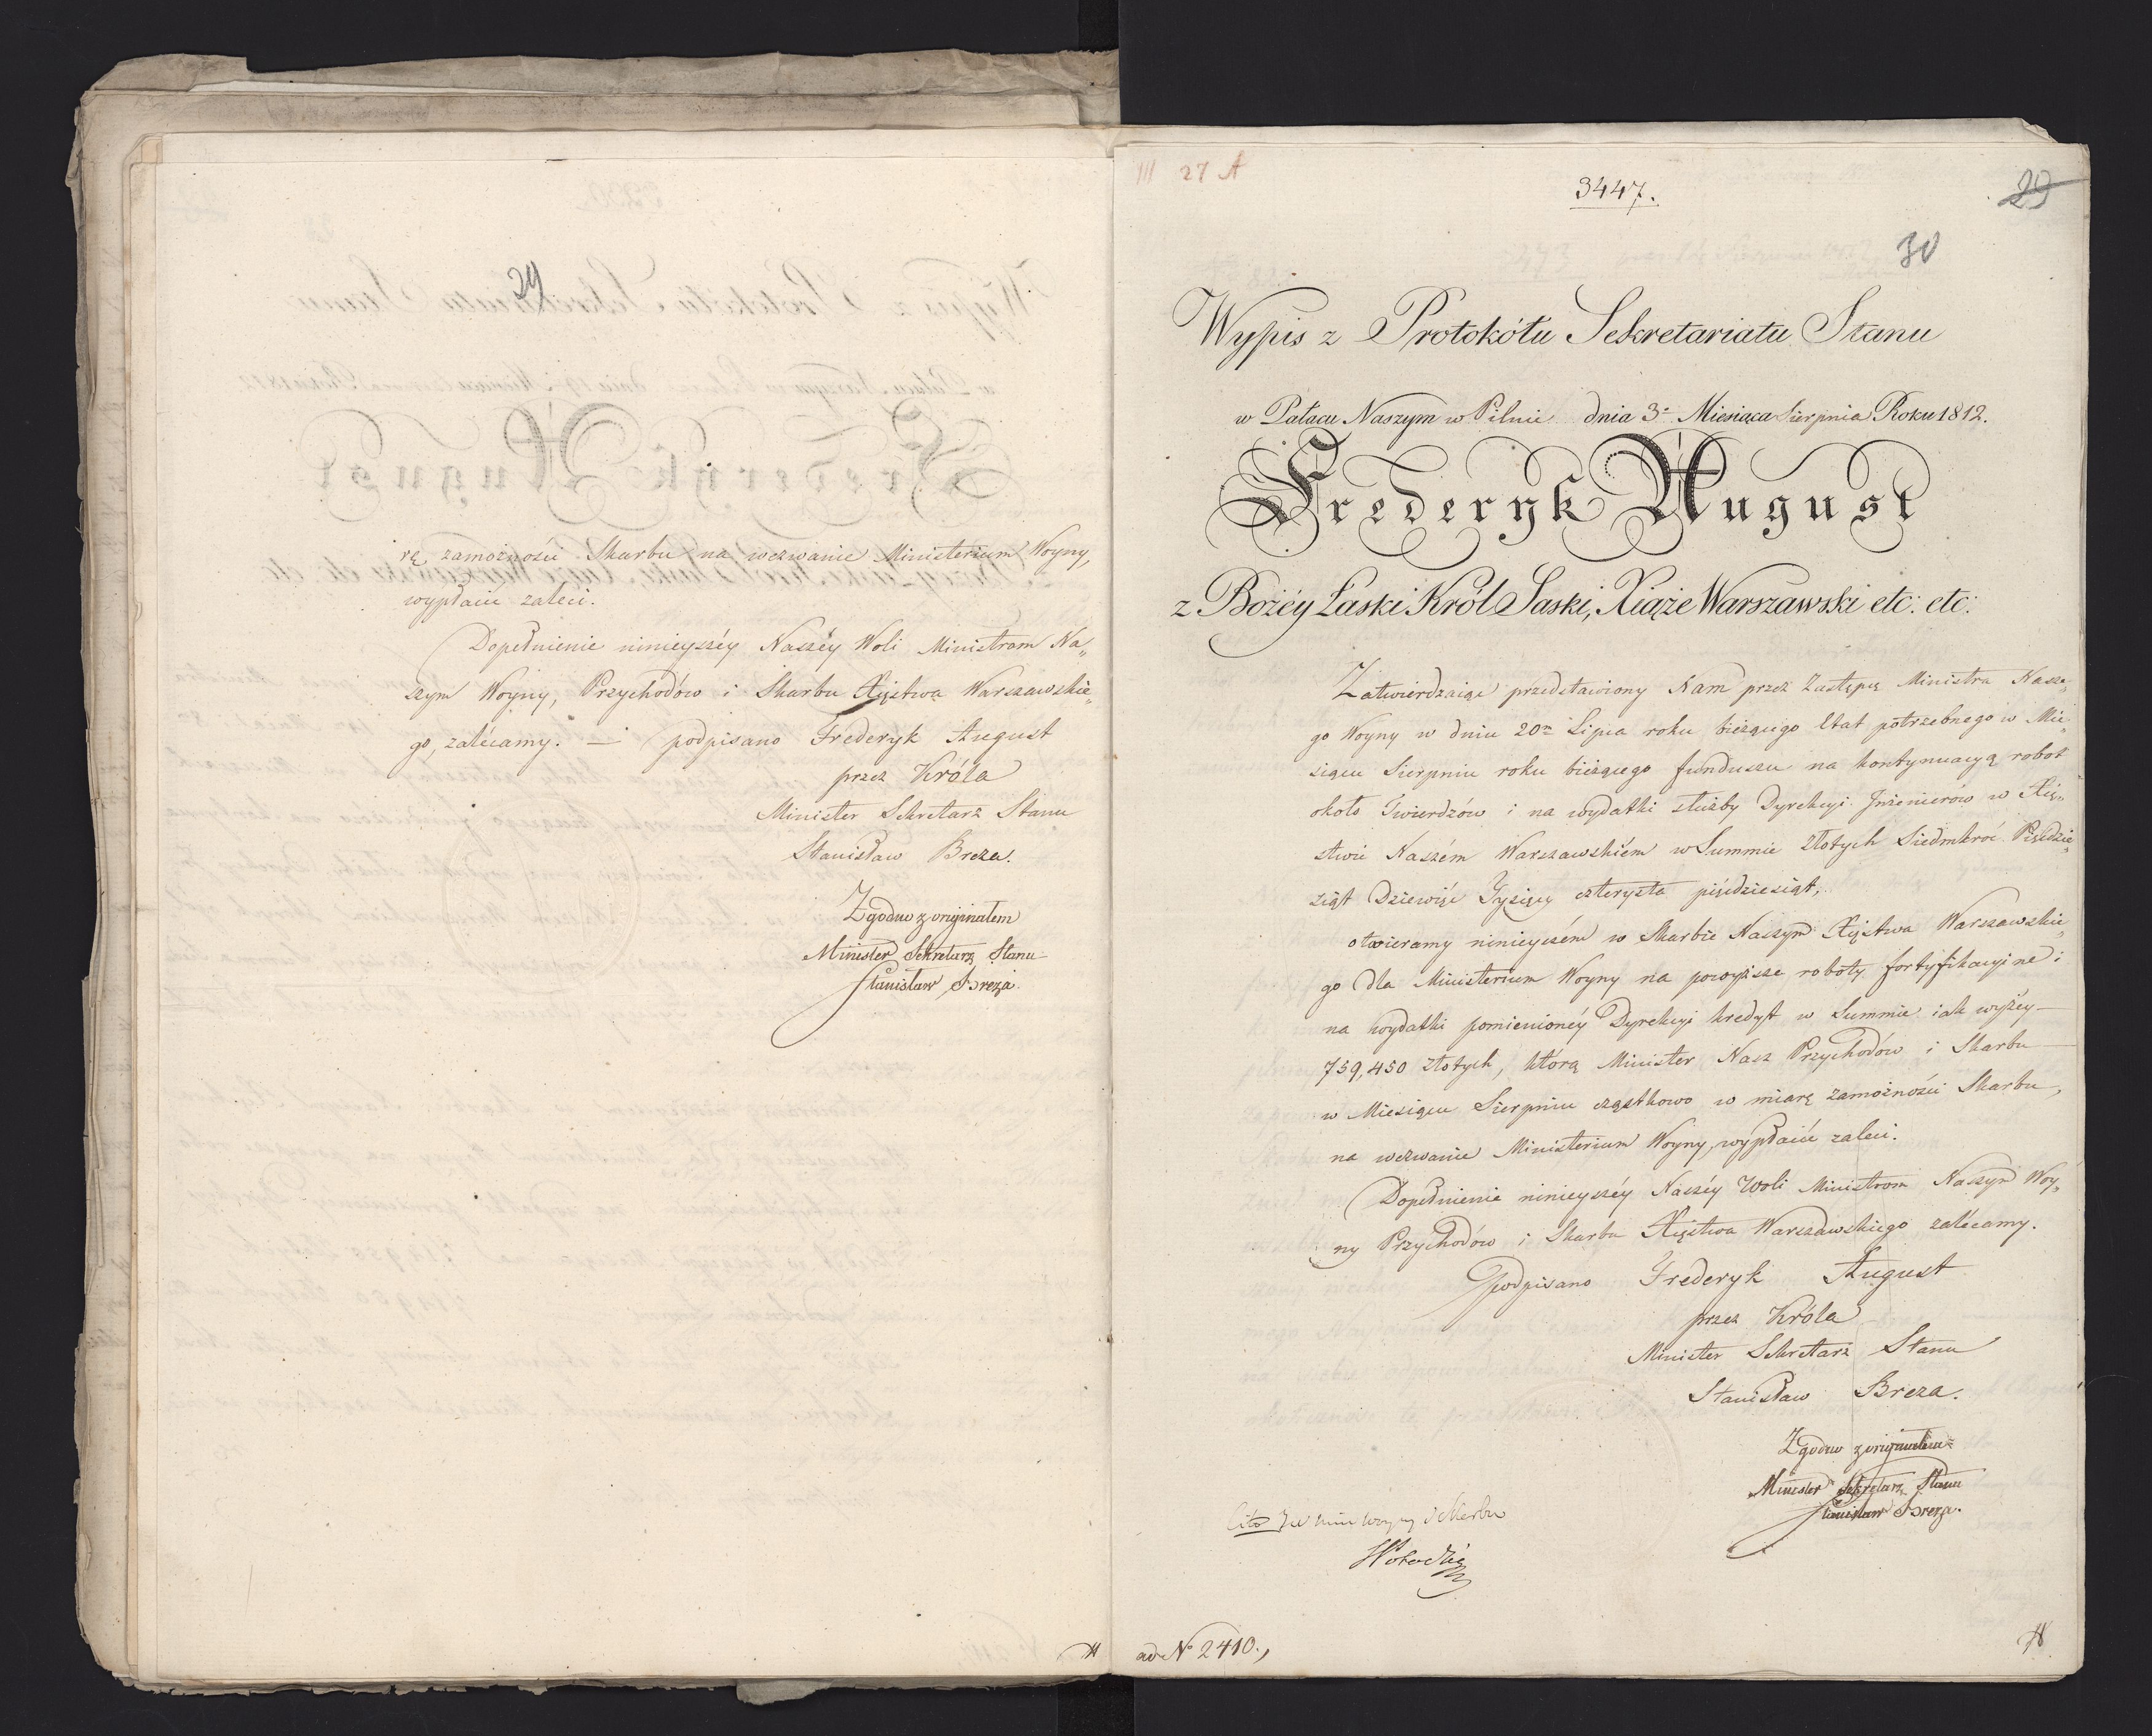 29
rę zamożności Skarbu na wezwanie Ministerium Woyny,
wypłacić zaleci.
Dopełnienie ninieyszéy Naszéy Woli Ministrom Na„
szym Woyny, Przychodów i Skarbu Xięstwa Warszawskie„
go, zalécamy. — podpisano Frederyk August
przez Króla
Minister Sekretarz Stanu
Stanisław Breza.
Zgodno z originałem
Minister Sekretarz Stanu
Stanisław Breza
III 27 A
3447.
29
30
Wypis z Protokółu Sekretariatu Stanu
w Pałacu Naszym w Pilnic dnia 3º Miesiąca Sierpnia Roku 1812.
Frederyk August
z Bożéy Łaski Król Saski, Xiąże Warszawski etc: etc:
Zatwierdzaiąc przedstawiony Nam przez Zastępcę Ministra Nasze„
go Woyny w dniu 20m Lipca roku bieżącego Etat potrzebnego w Mie„
siącu Sierpniu roku bieżącego funduszu na kontynuacyą robot
około Twierdzów i na wydatki służby Dyrekcyi Jnżenierów w Xię„
stwie Naszém Warszawskiém w Summie Złotych Siedmkroć Pięćdzie„
siąt Dziewięć Tysięcy czterysta pięćdziesiąt,
otwieramy ninieyszém w Skarbie Naszym Xięstwa Warszawskie„
go dla Ministerium Woyny na powyższe roboty fortyfikacyine i
na wydatki pomienionéy Dyrekcyi kredyt w Summie iak wyżéy —
759,450 złotych, którą Minister Nasz Przychodów i Skarbu —
w Miesiącu Sierpniu cząstkowo w miarę zamożności Skarbu,
na wezwanie Ministerium Woyny, wypłacić zaleci.
Dopełnienie ninieyszéy Naszéy Woli Ministrom Naszym Woy„
ny Przychodów i Skarbu Xięstwa Warszawskiego zalécamy.
podpisano Frederyk August
przez Króla
Minister Sekretarz Stanu
Stanisław Breza.
Zgodno z originałem
Minister Sekretarz Stanu
Stanisław Breza.
Cito Woyny i Skarbu
ad Nº 2410.,